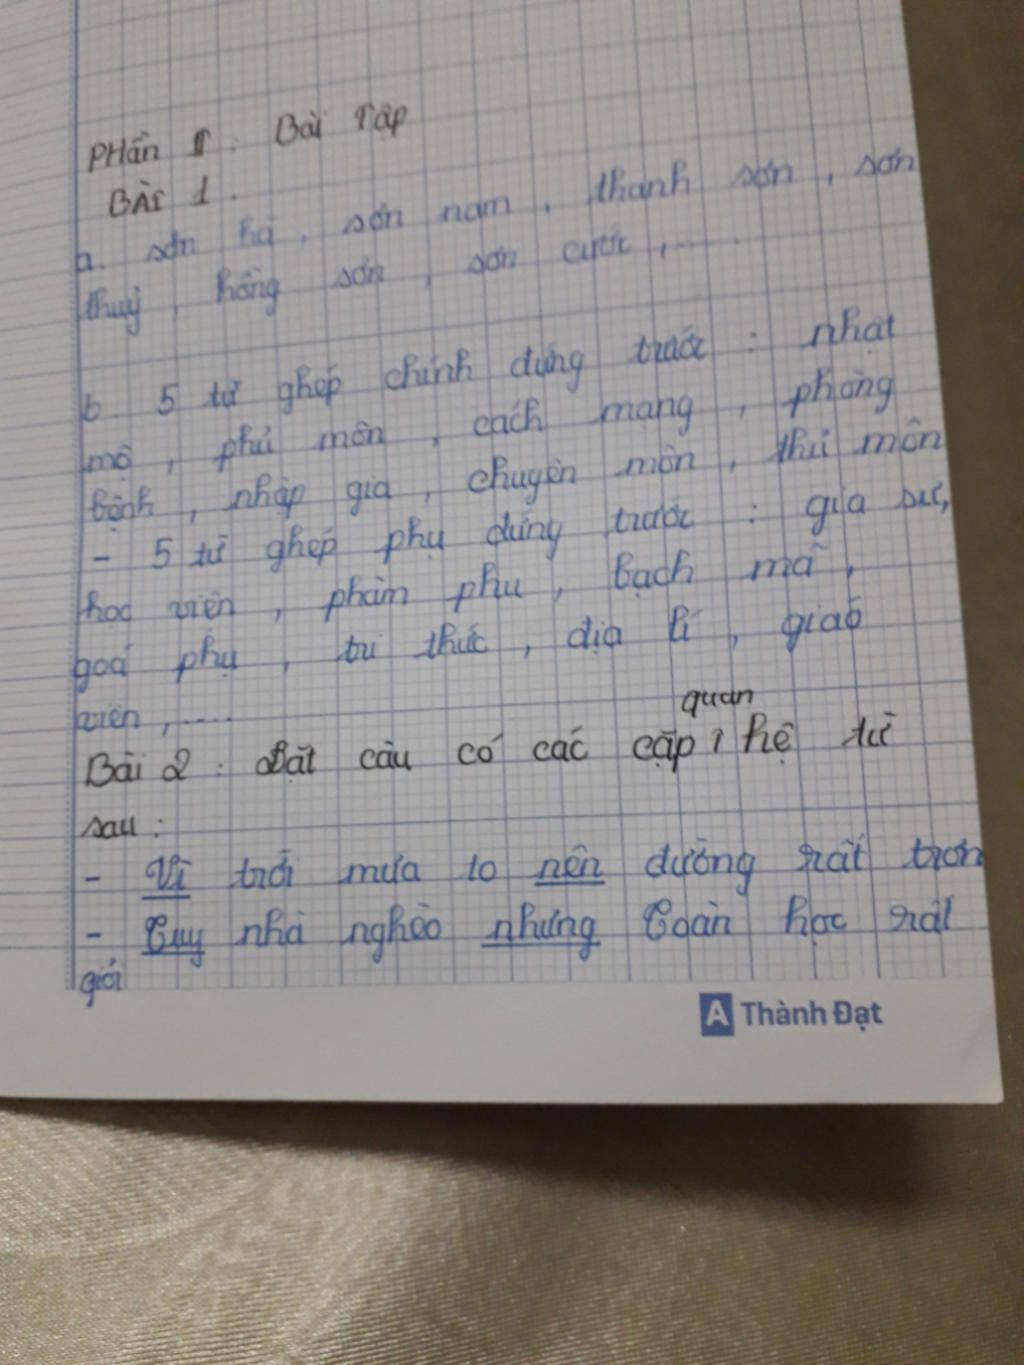 Phần I : Bài Tập
Bài 1.
a. sơn hà, sơn nam, thanh sơn, sơn
thuỷ, hồng sơn, sơn cước, ......
b. 5 từ ghép chính đứng trước : nhạt
mộ, phủ môn, cách mạng, phòng
bệnh, nhập gia, chuyên môn, thủ môn
- 5 từ ghép phụ đứng trước : gia sư,
học viên, phàm phu, bạch mã,
goá phụ, tri thức, địa lí, giáo
viên, .....
Bài 2 : Đặt câu có các cặp quan hệ từ
sau :
- Vì trời mưa to nên đường rất trơn
- Tuy nhà nghèo nhưng Toàn học rất
giỏi
A Thành Đạt